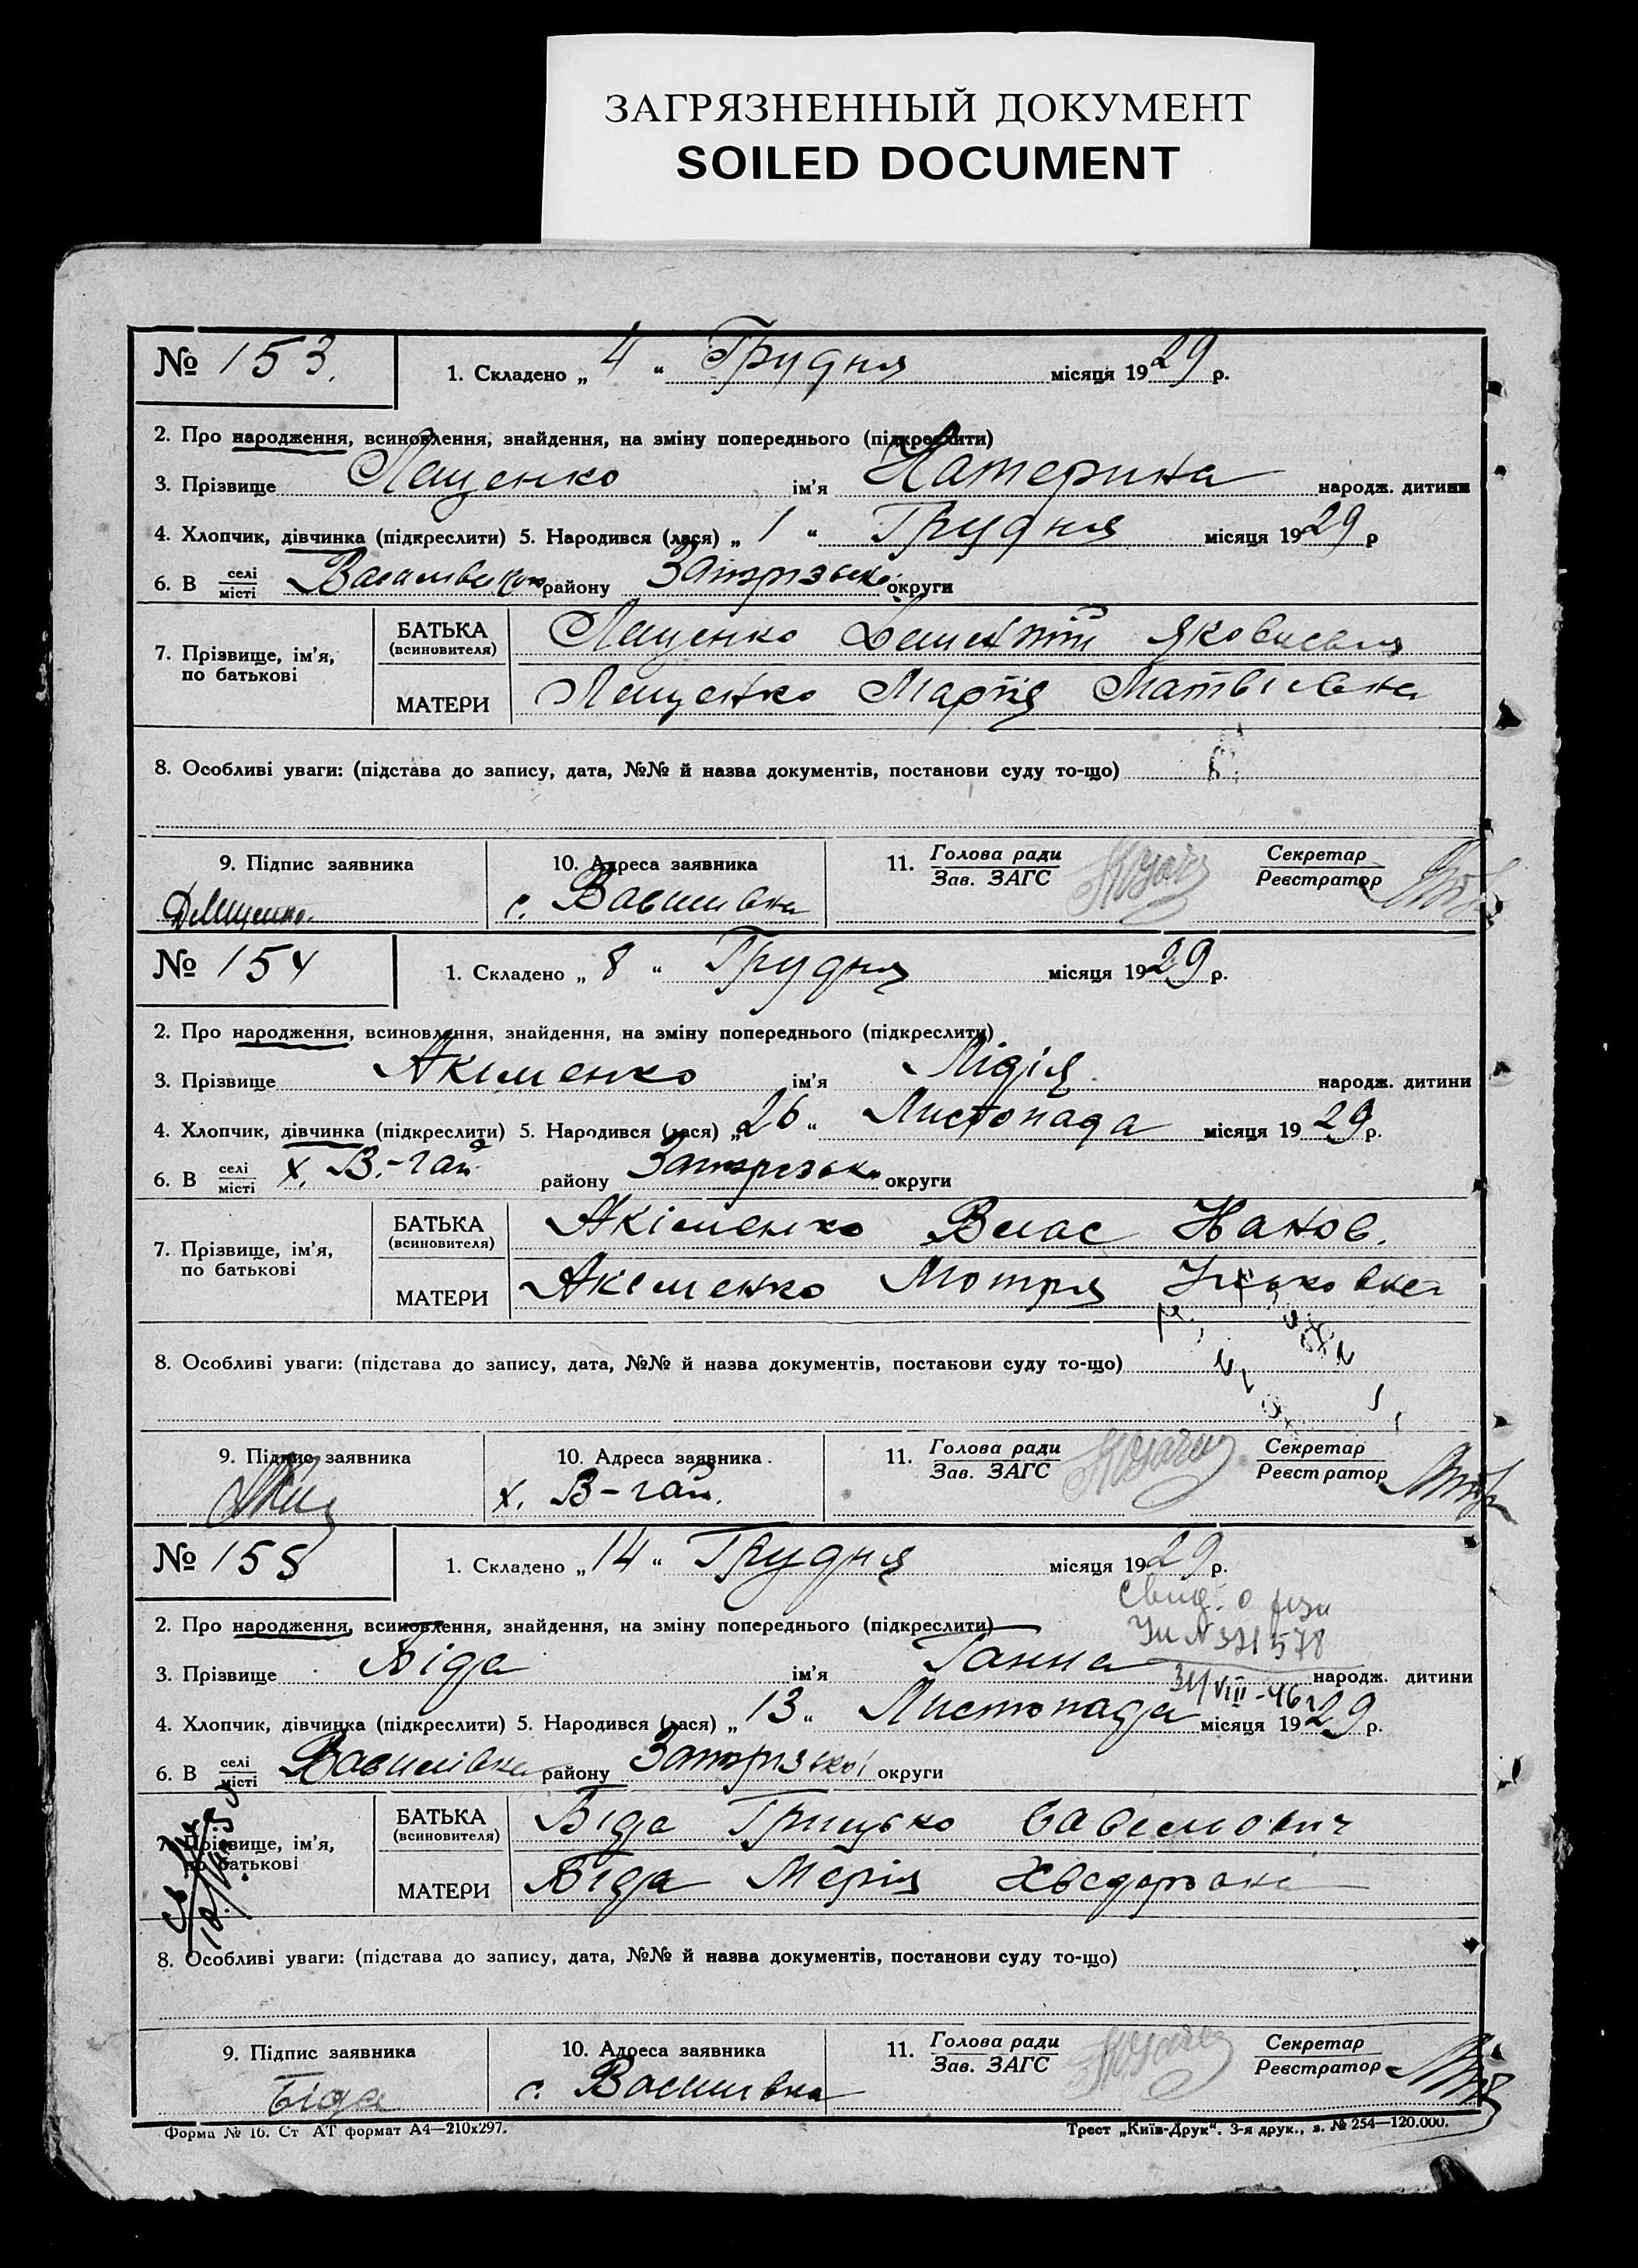 ЗАГРЯЗНЕННЫЙ ДОКУМЕНТ
SOILED DOCUMENT
№ 153. 1. Складено „ 4 “ Грудня місяця 1929 р.
2. Про народження, всиновлення, знайдення, на зміну попереднього (підкреслити)
3. Прізвище Лещенко ім’я Катерина народж. дитини
4. Хлопчик, дівчинка (підкреслити) 5. Народився (лася) „ 1 “ Грудня місяця 1929 р
6. В селі місті району округи
7. Прізвище, ім’я, по батькові
БАТЬКА (всиновителя) Лещенко Яковлевич
МАТЕРИ Лещенко Марія Матвіевна
8. Особливі уваги: (підстава до запису, дата, №№ й назва документів, постанови суду то-що)
9. Підпис заявника 10. Адреса заявника 11. Голова ради Зав. ЗАГС Секретар Реєстратор
с. Василівка
№ 154 1. Складено „ 8 “ Грудня місяця 1929 р.
2. Про народження, всиновлення, знайдення, на зміну попереднього (підкреслити)
3. Прізвище Акіменко ім’я Лидія народж. дитини
4. Хлопчик, дівчинка (підкреслити) 5. Народився (лася) „ 26 “ Листопада місяця 1929 р.
6. В селі місті х. В.-гай району округи
7. Прізвище, ім’я, по батькові
БАТЬКА (всиновителя) Акіменко Влас Иванов.
МАТЕРИ Акіменко Мотря
8. Особливі уваги: (підстава до запису, дата, №№ й назва документів, постанови суду то-що)
9. Підпис заявника 10. Адреса заявника. 11. Голова ради Зав. ЗАГС Секретар Реєстратор
х. В-гай.
№ 155 1. Складено „ 14 “ Грудня місяця 1929 р.
2. Про народження, всиновлення, знайдення, на зміну попереднього (підкреслити)
3. Прізвище Біда ім’я Ганна народж. дитини
31/VIII-46
4. Хлопчик, дівчинка (підкреслити) 5. Народився (лася) „ 13 “ Листопада місяця 1929 р.
6. В селі місті Василівка району Запорізької округи
7. Прізвище, ім’я, по батькові
БАТЬКА (всиновителя) Біда Грицько
МАТЕРИ Біда Марія Хведоровна
8. Особливі уваги: (підстава до запису, дата, №№ й назва документів, постанови суду то-що)
9. Підпис заявника 10. Адреса заявника 11. Голова ради Зав. ЗАГС Секретар Реєстратор
Біда с. Василівка
Форма № 16. Ст АТ формат А4—210х297. Трест „Київ-Друк“. 3-я друк., з. № 254—120.000.